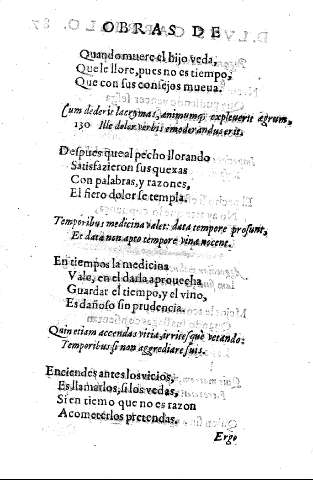 OBRAS DE
Quando muere el hijo veda,
Que le llore, pues no es tiempo,
Que con sus consejos mueua.
Cum dederit lacrymas, animumq; expleuerit ægrum,
130 Ille dolor verbis emoderandus erit.
Despues que al pecho llorando
Satisfazieron sus quexas
Con palabras, y razones,
El fiero dolor se templa.
Temporibus medicina valet: data tempore prosunt,
Et data non apto tempore vina nocent.
En tiempos la medicina
Vale, en el darla aprouecha
Guardar el tiempo, y el vino,
Es dañoso sin prudencia.
Quin etiam accendas vitia, irritesque vetando:
Temporibus si non aggrediare suis.
Enciendes antes los vicios,
Es llamerlos, si los vedas,
Si en tiemo que no es razon
Acometerlos pretendas.
Ergo